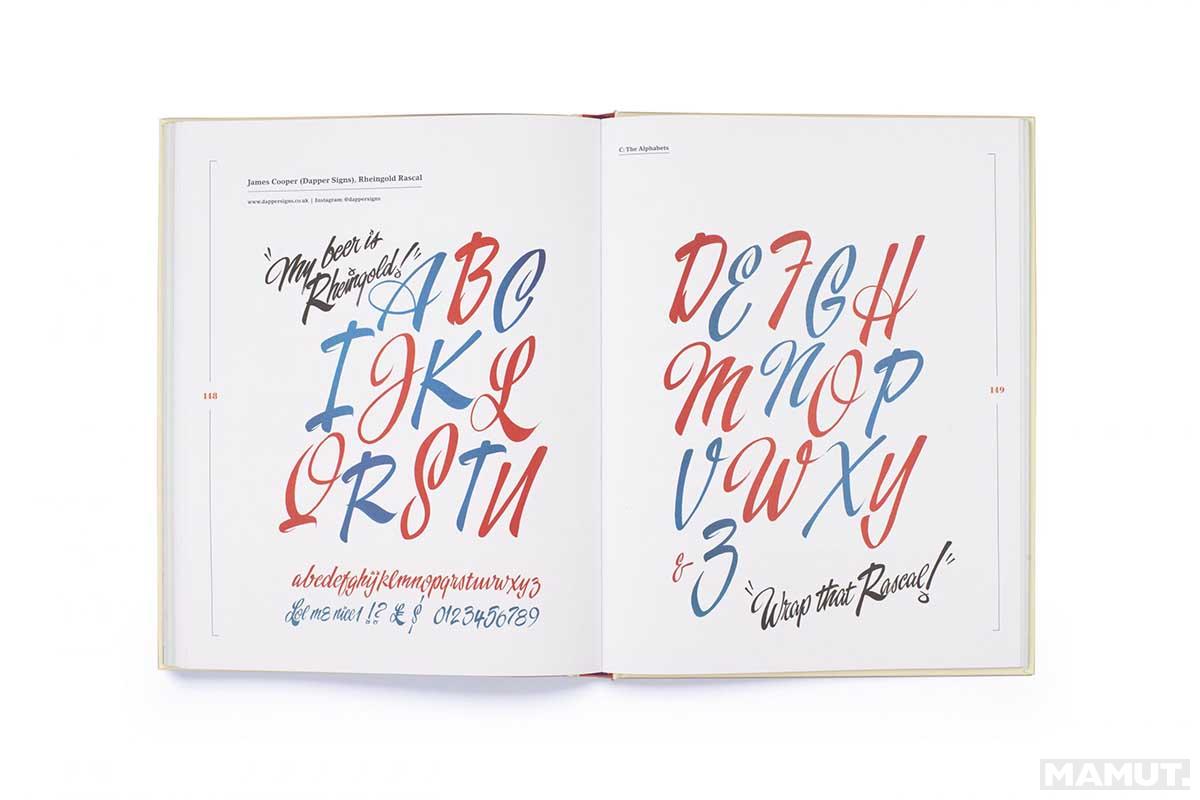 James Cooper (Dapper Signs), Rheingold Rascal
www.dappersigns.co.uk | Instagram: @dappersigns
"My beer is
Rheingold!"
A B C
I J K L
Q R S T U
abcdefghijklmnopqrstuvwxyz
!? £ $ 0123456789
148
C: The Alphabets
D E F G H
M N O P
V W X Y
& Z
"Wrap that Rascal!"
149
MAMUT.